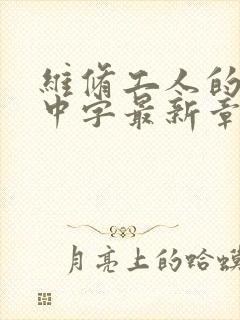 维脩工人的
中字最新章
月亮上的蛤蟆